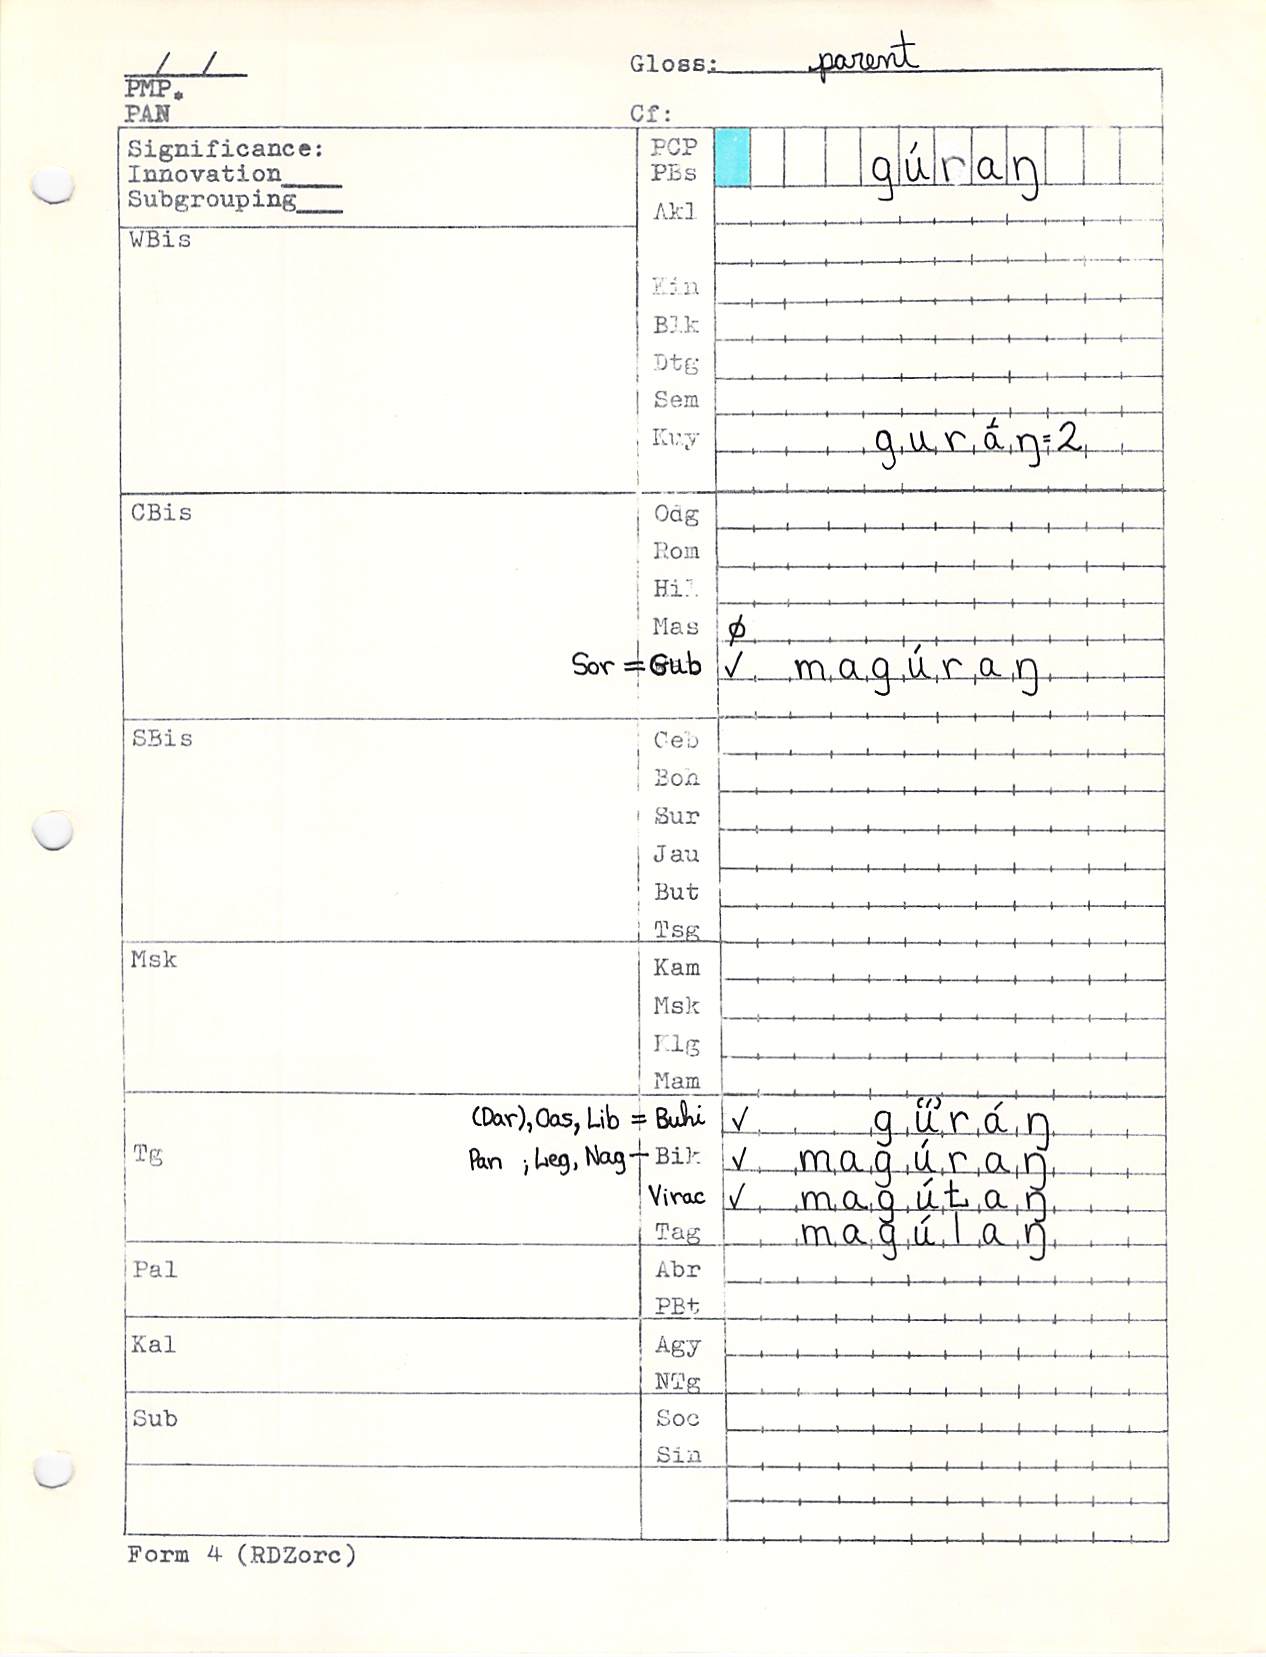 / /
Gloss: parent
PMP.
PAN Cf:
Significance: PCP gúraŋ
Innovation PBs
Subgrouping Akl
WBis
Kin
Blk
Dtg
Sem
Kuy guráŋ=2
CBis Odg
Rom
Hil
Mas ∅
Sor = Gub ✓ magúraŋ
SBis Ceb
Boh
Sur
Jau
But
Tsg
Msk Kam
Msk
Klg
Mam
(Dar), Oas, Lib = Buhi ✓
Tg Pan ; Leg, Nag Bik ✓ magúraŋ
Virac ✓ magútaŋ
Tag magúlaŋ
Pal Abr
PBt
Kal Agy
NTg
Sub Soc
Sin
Form 4 (RDZorc)